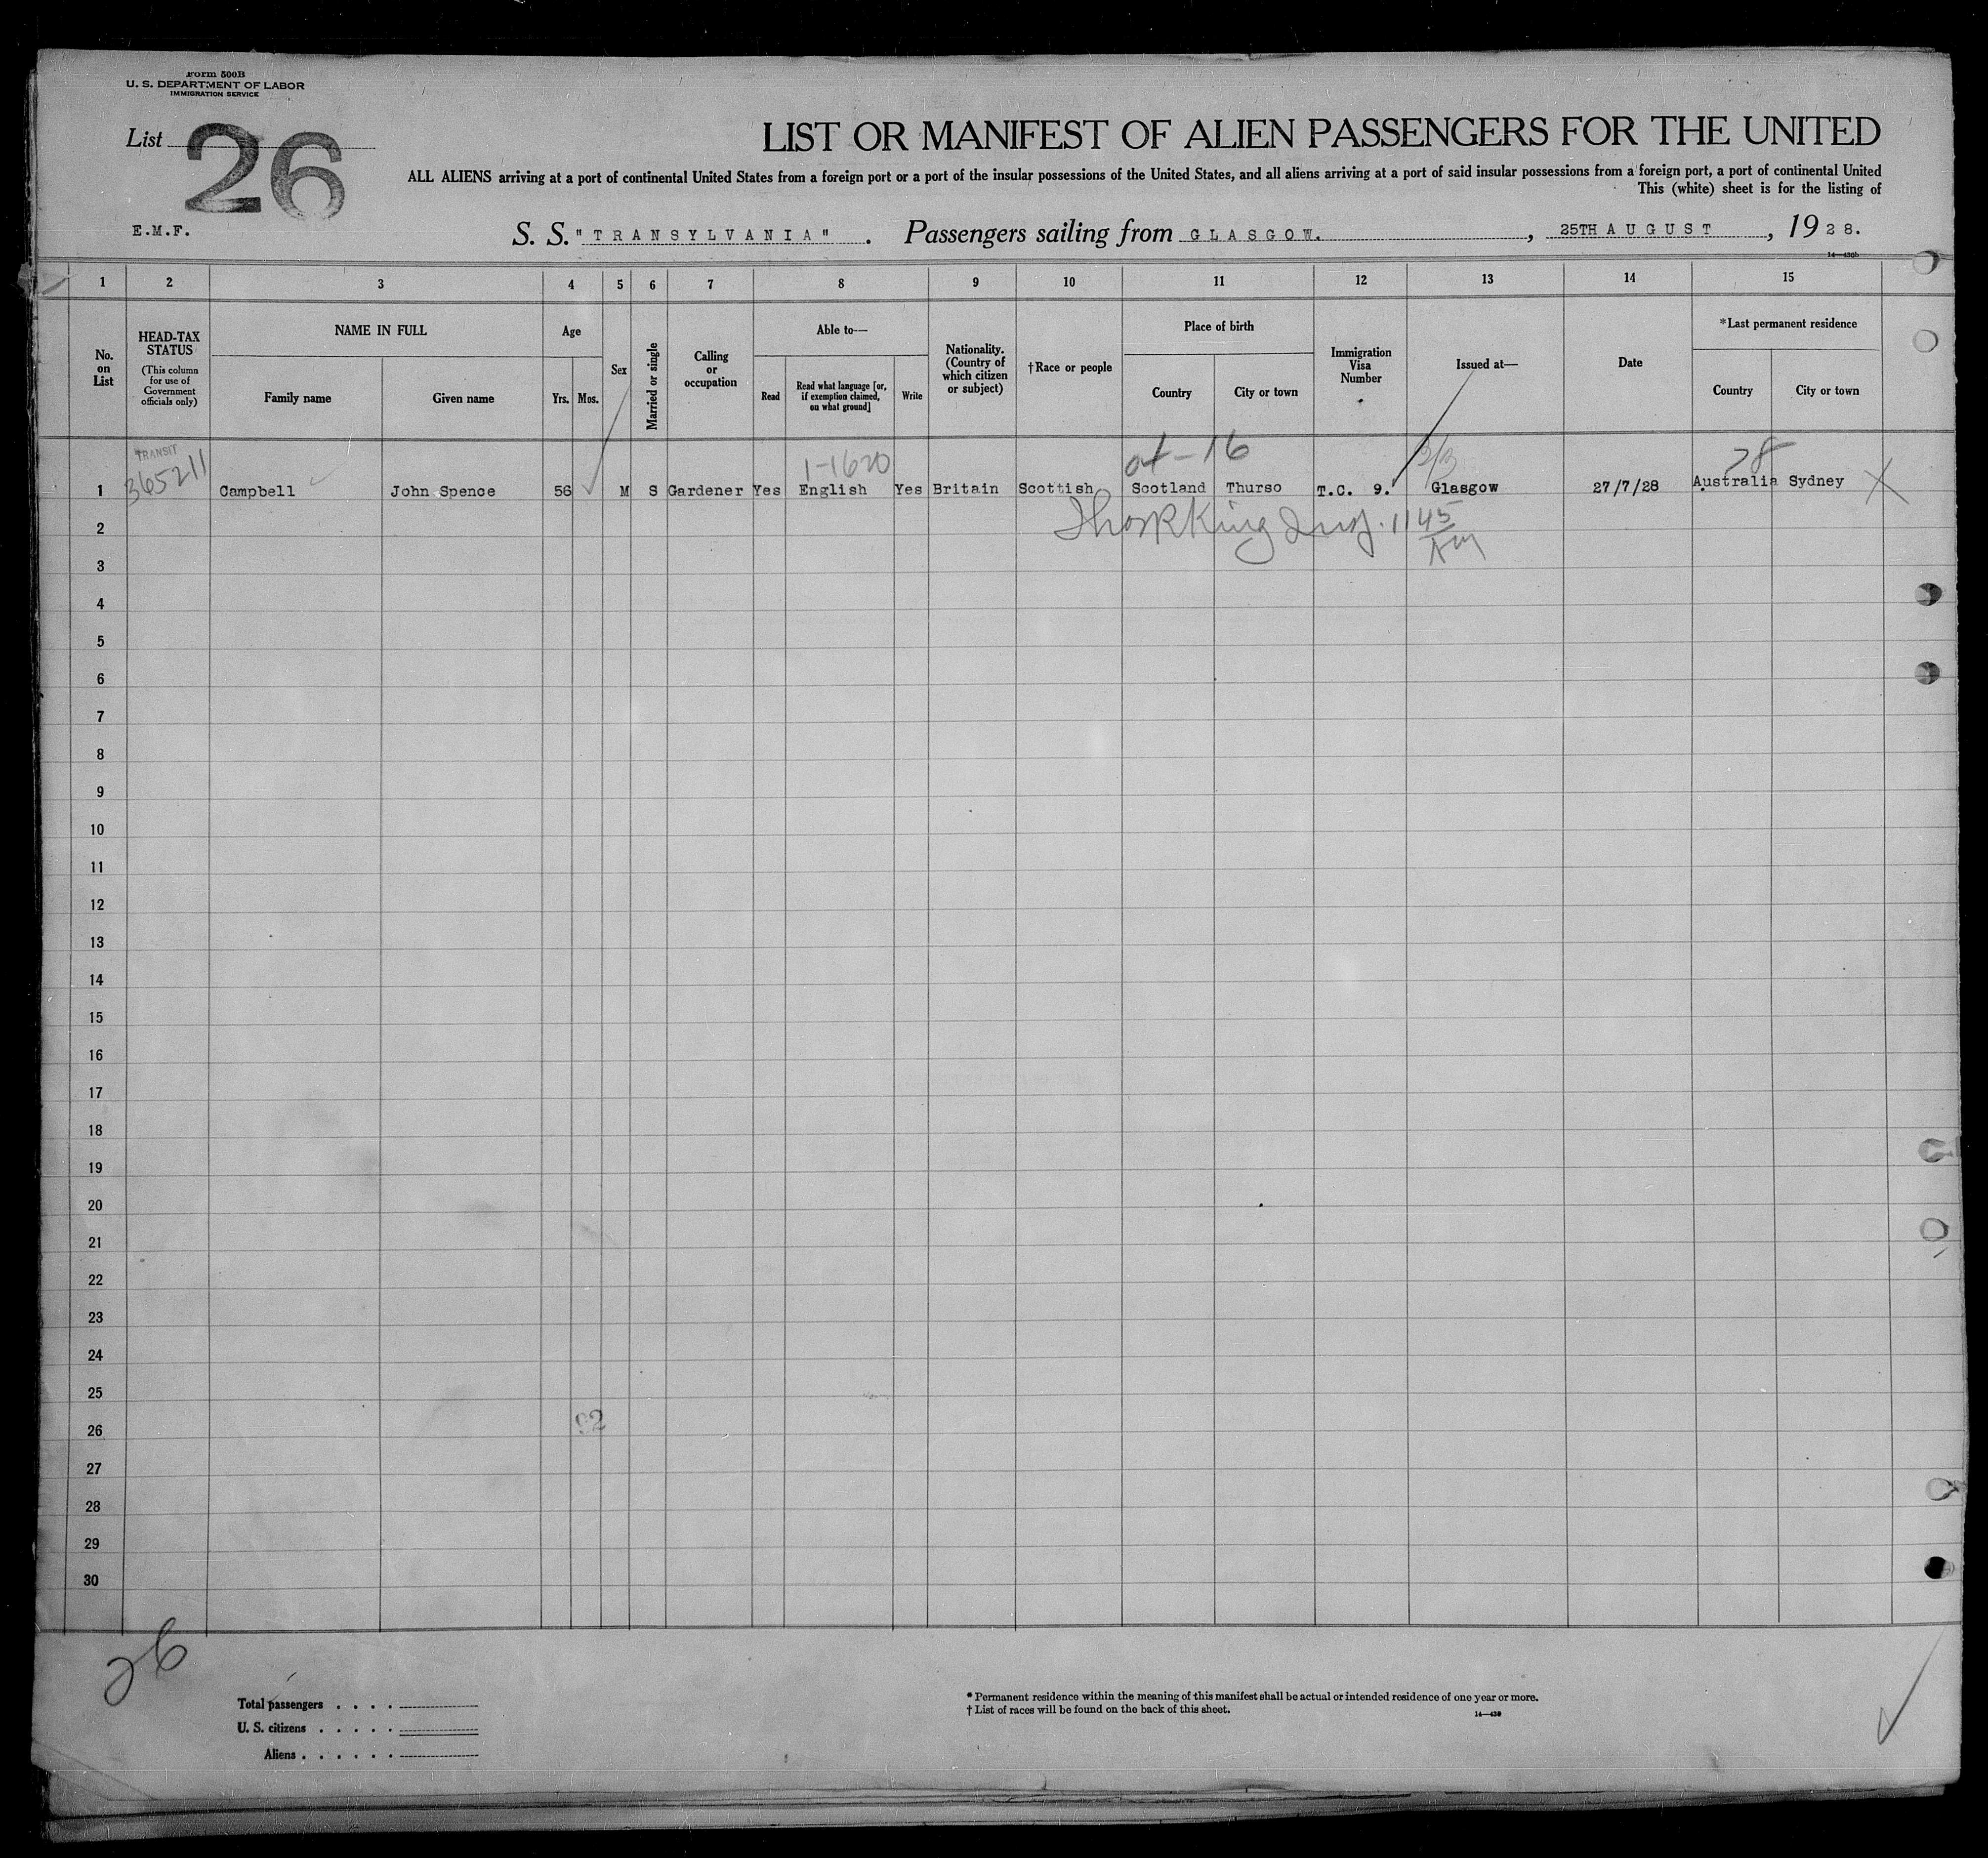 Form 500B
U. S. DEPARTMENT OF LABOR
IMMIGRATION SERVICE
List 26
LIST OR MANIFEST OF ALIEN PASSENGERS FOR THE UNITED
ALL ALIENS arriving at a port of continental United States from a foreign port or a port of the insular possessions of the United States, and all aliens arriving at a port of said insular possessions from a foreign port, a port of continental United
This (white) sheet is for the listing of
E.M.F.
S. S. "TRANSYLVANIA". Passengers sailing from GLASGOW., 25TH AUGUST, 1928.
14—430b
1 2 3 4 5 6 7 8 9 10 11 12 13 14 15
No. on List
HEAD-TAX STATUS
(This column for use of Government officials only)
NAME IN FULL
Family name
Given name
Age
Yrs.
Mos.
Sex
Married or single
Calling or occupation
Able to—
Read
Read what language [or, if exemption claimed, on what ground]
Write
Nationality. (Country of which citizen or subject)
†Race or people
Place of birth
Country
City or town
Immigration Visa Number
Issued at—
Date
*Last permanent residence
Country
City or town
TRANSIT
365211
1-1620
16
28
1 Campbell John Spence 56 M S Gardener Yes English Yes Britain Scottish Scotland Thurso T.C. 9. Glasgow 27/7/28 Australia Sydney X
2
1145
3
4
5
6
7
8
9
10
11
12
13
14
15
16
17
18
19
20
21
22
23
24
25
26
27
28
29
30
26
Total passengers . . . .
U. S. citizens . . . . .
Aliens . . . . . .
* Permanent residence within the meaning of this manifest shall be actual or intended residence of one year or more.
† List of races will be found on the back of this sheet.
14—430